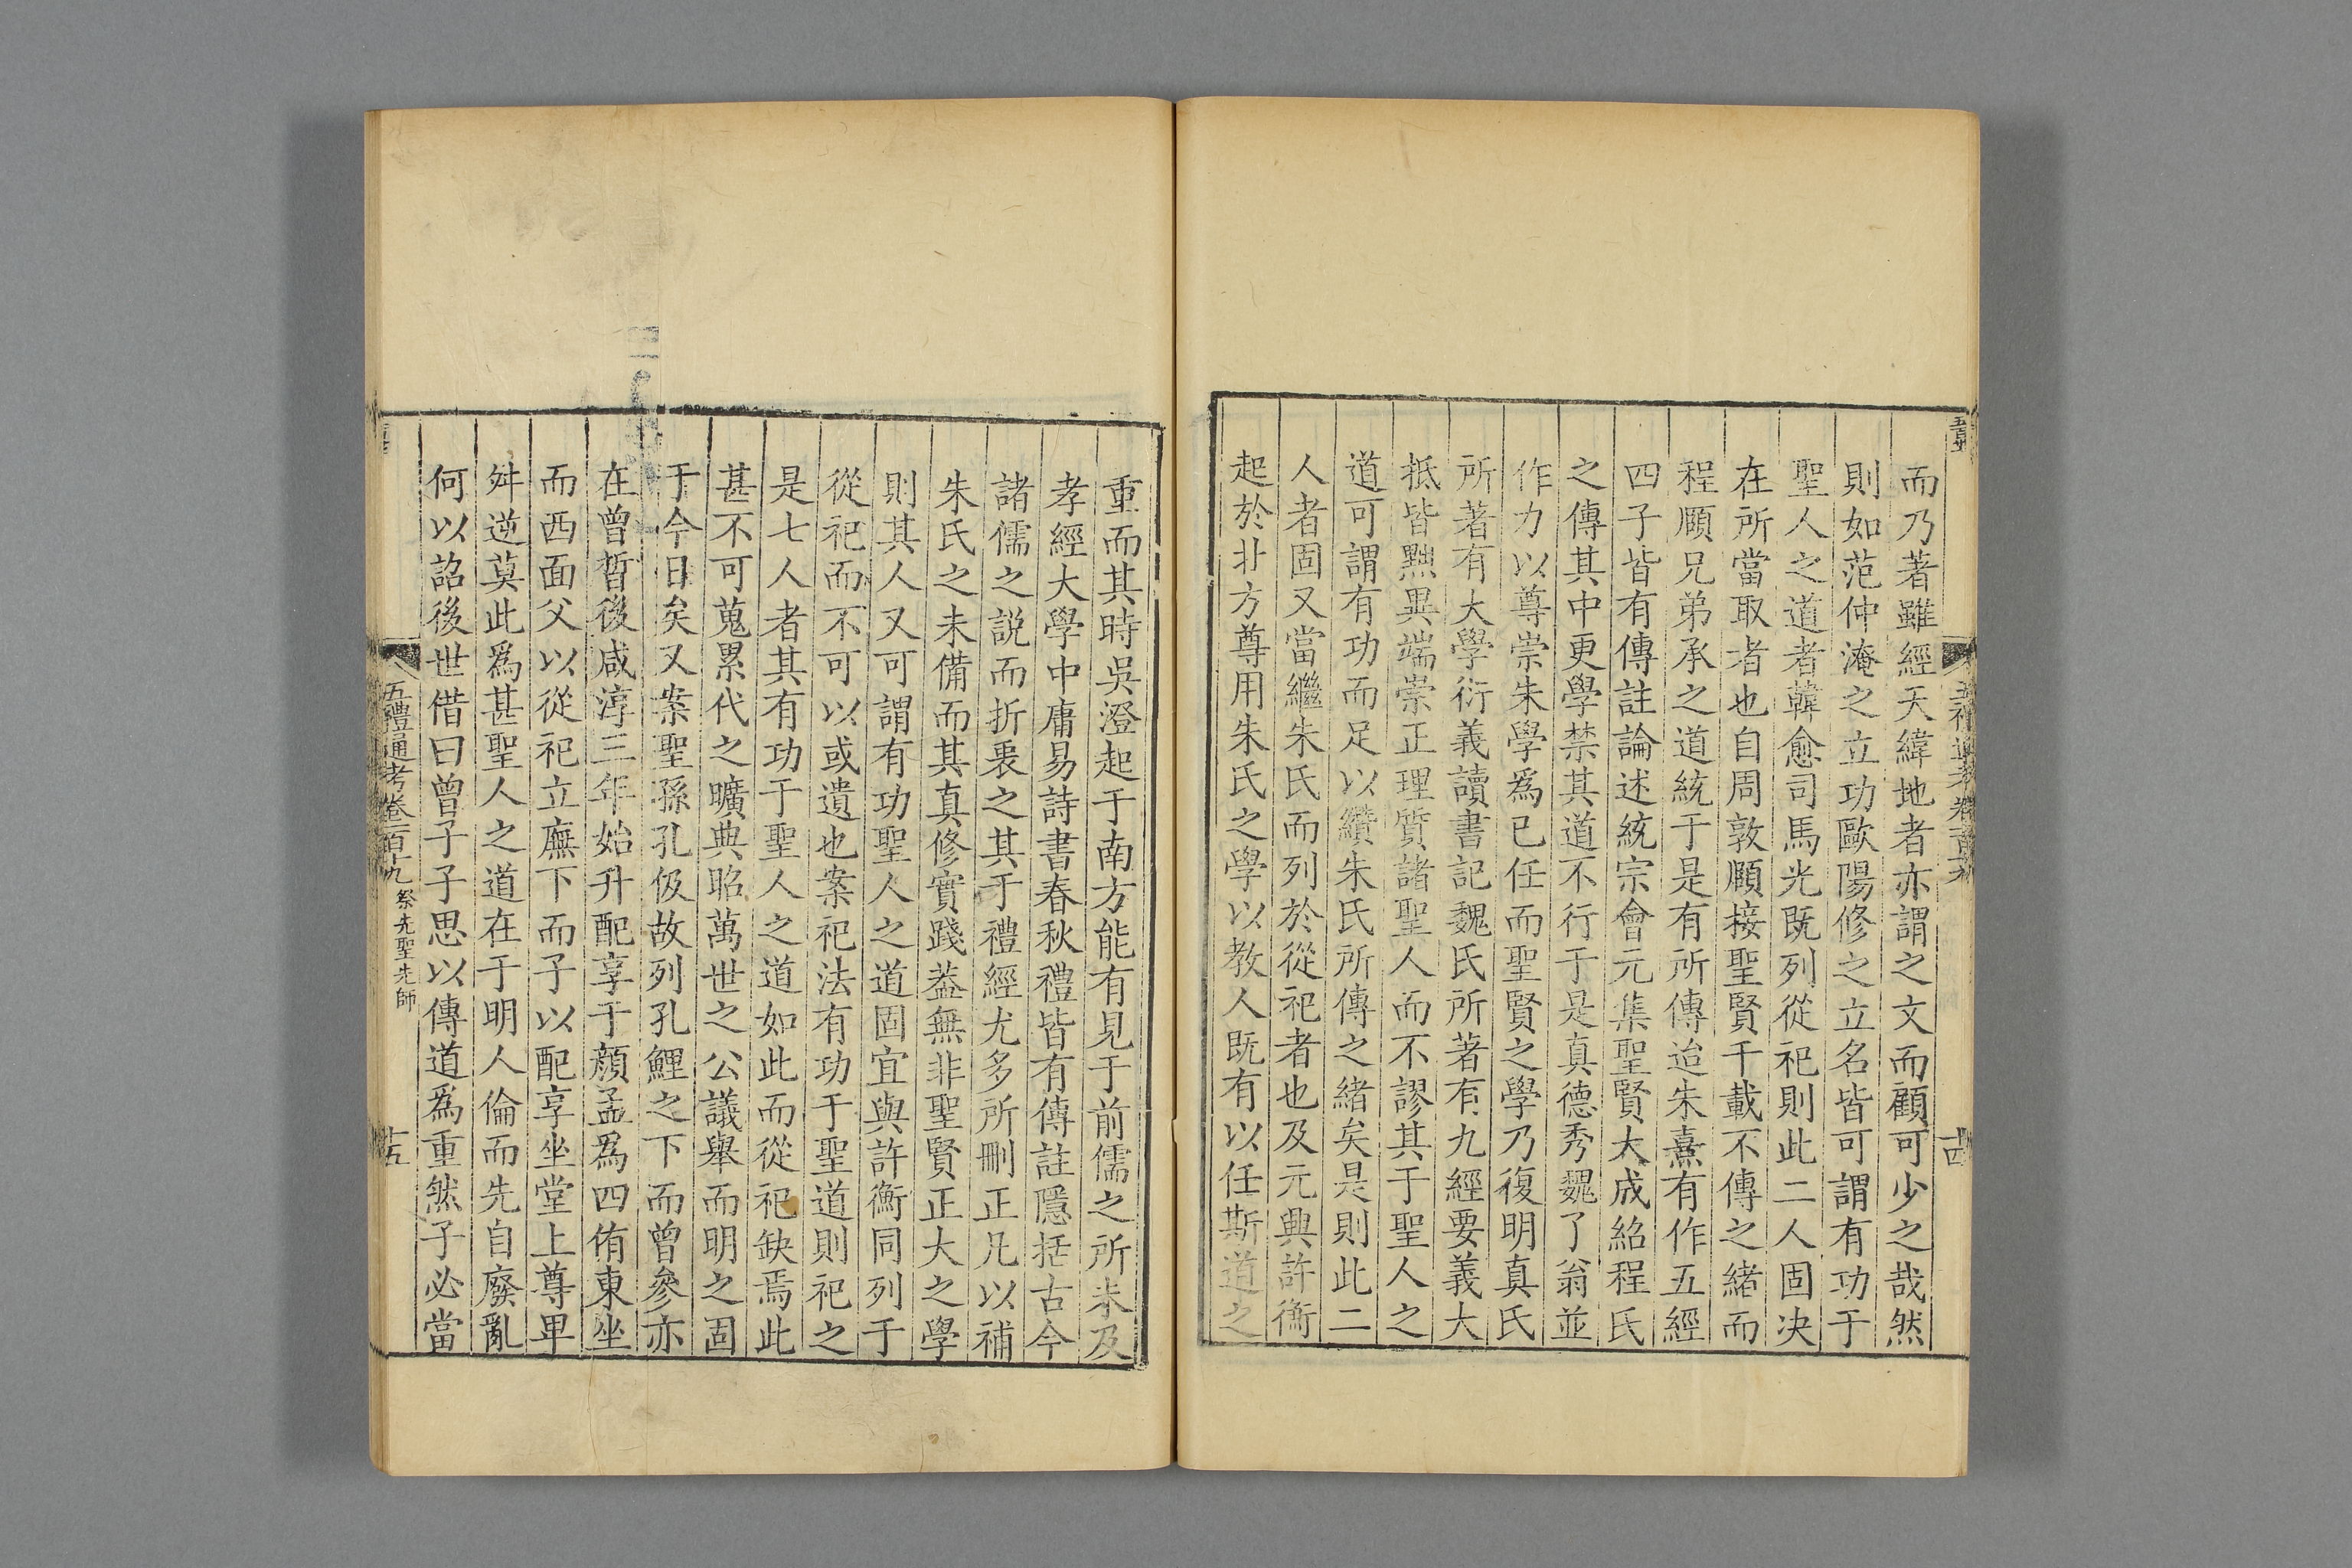 而乃著雖經天緯地者亦謂之文而顧可少之哉然
則如范仲淹之立功歐陽修之立名皆可謂有功于
聖人之道者韓愈司馬光既列從祀則此二人固決
在所當取者也自周敦頤接聖賢千載不傳之緒而
程頤兄弟承之道統于是有所傳迨朱熹有作五經
四子皆有傳註論述統宗會元集聖賢大成紹程氏
之傳其中更學禁其道不行于是真德秀魏了翁並
作力以尊崇朱學爲己任而聖賢之學乃復明真氏
所著有大學衍義讀書記魏氏所著有九經要義大
抵皆黜異端崇正理質諸聖人而不謬其于聖人之
道可謂有功而足以纘朱氏所傳之緒矣是則此二
人者固又當繼朱氏而列於從祀者也及元興許衡
起於北方尊用朱氏之學以教人既有以任斯道之
重而其時吳澄起于南方能有見于前儒之所未及
孝經大學中庸易詩書春秋禮皆有傳註隱括古今
諸儒之說而折衷之其于禮經尤多所刪正凡以補
朱氏之未備而其真修實踐葢無非聖賢正大之學
則其人又可謂有功聖人之道固宜與許衡同列于
從祀而不可以或遺也案祀法有功于聖道則祀之
是七人者其有功于聖人之道如此而從祀缺焉此
甚不可蒐累代之曠典昭萬世之公議舉而明之固
于今日矣又案聖孫孔伋故列孔鯉之下而曾參亦
在曾晳後咸淳三年始升配享于顏孟爲四侑東坐
而西面父以從祀立廡下而子以配享坐堂上尊卑
舛逆莫此爲甚聖人之道在于明人倫而先自廢亂
何以詔後世借曰曾子子思以傳道爲重然子必當
五禮通考卷一百十九 祭先聖先師
十五